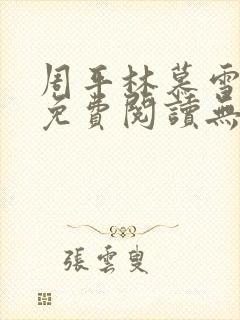 周平林慕雪
免費閱讀無
張雲叟